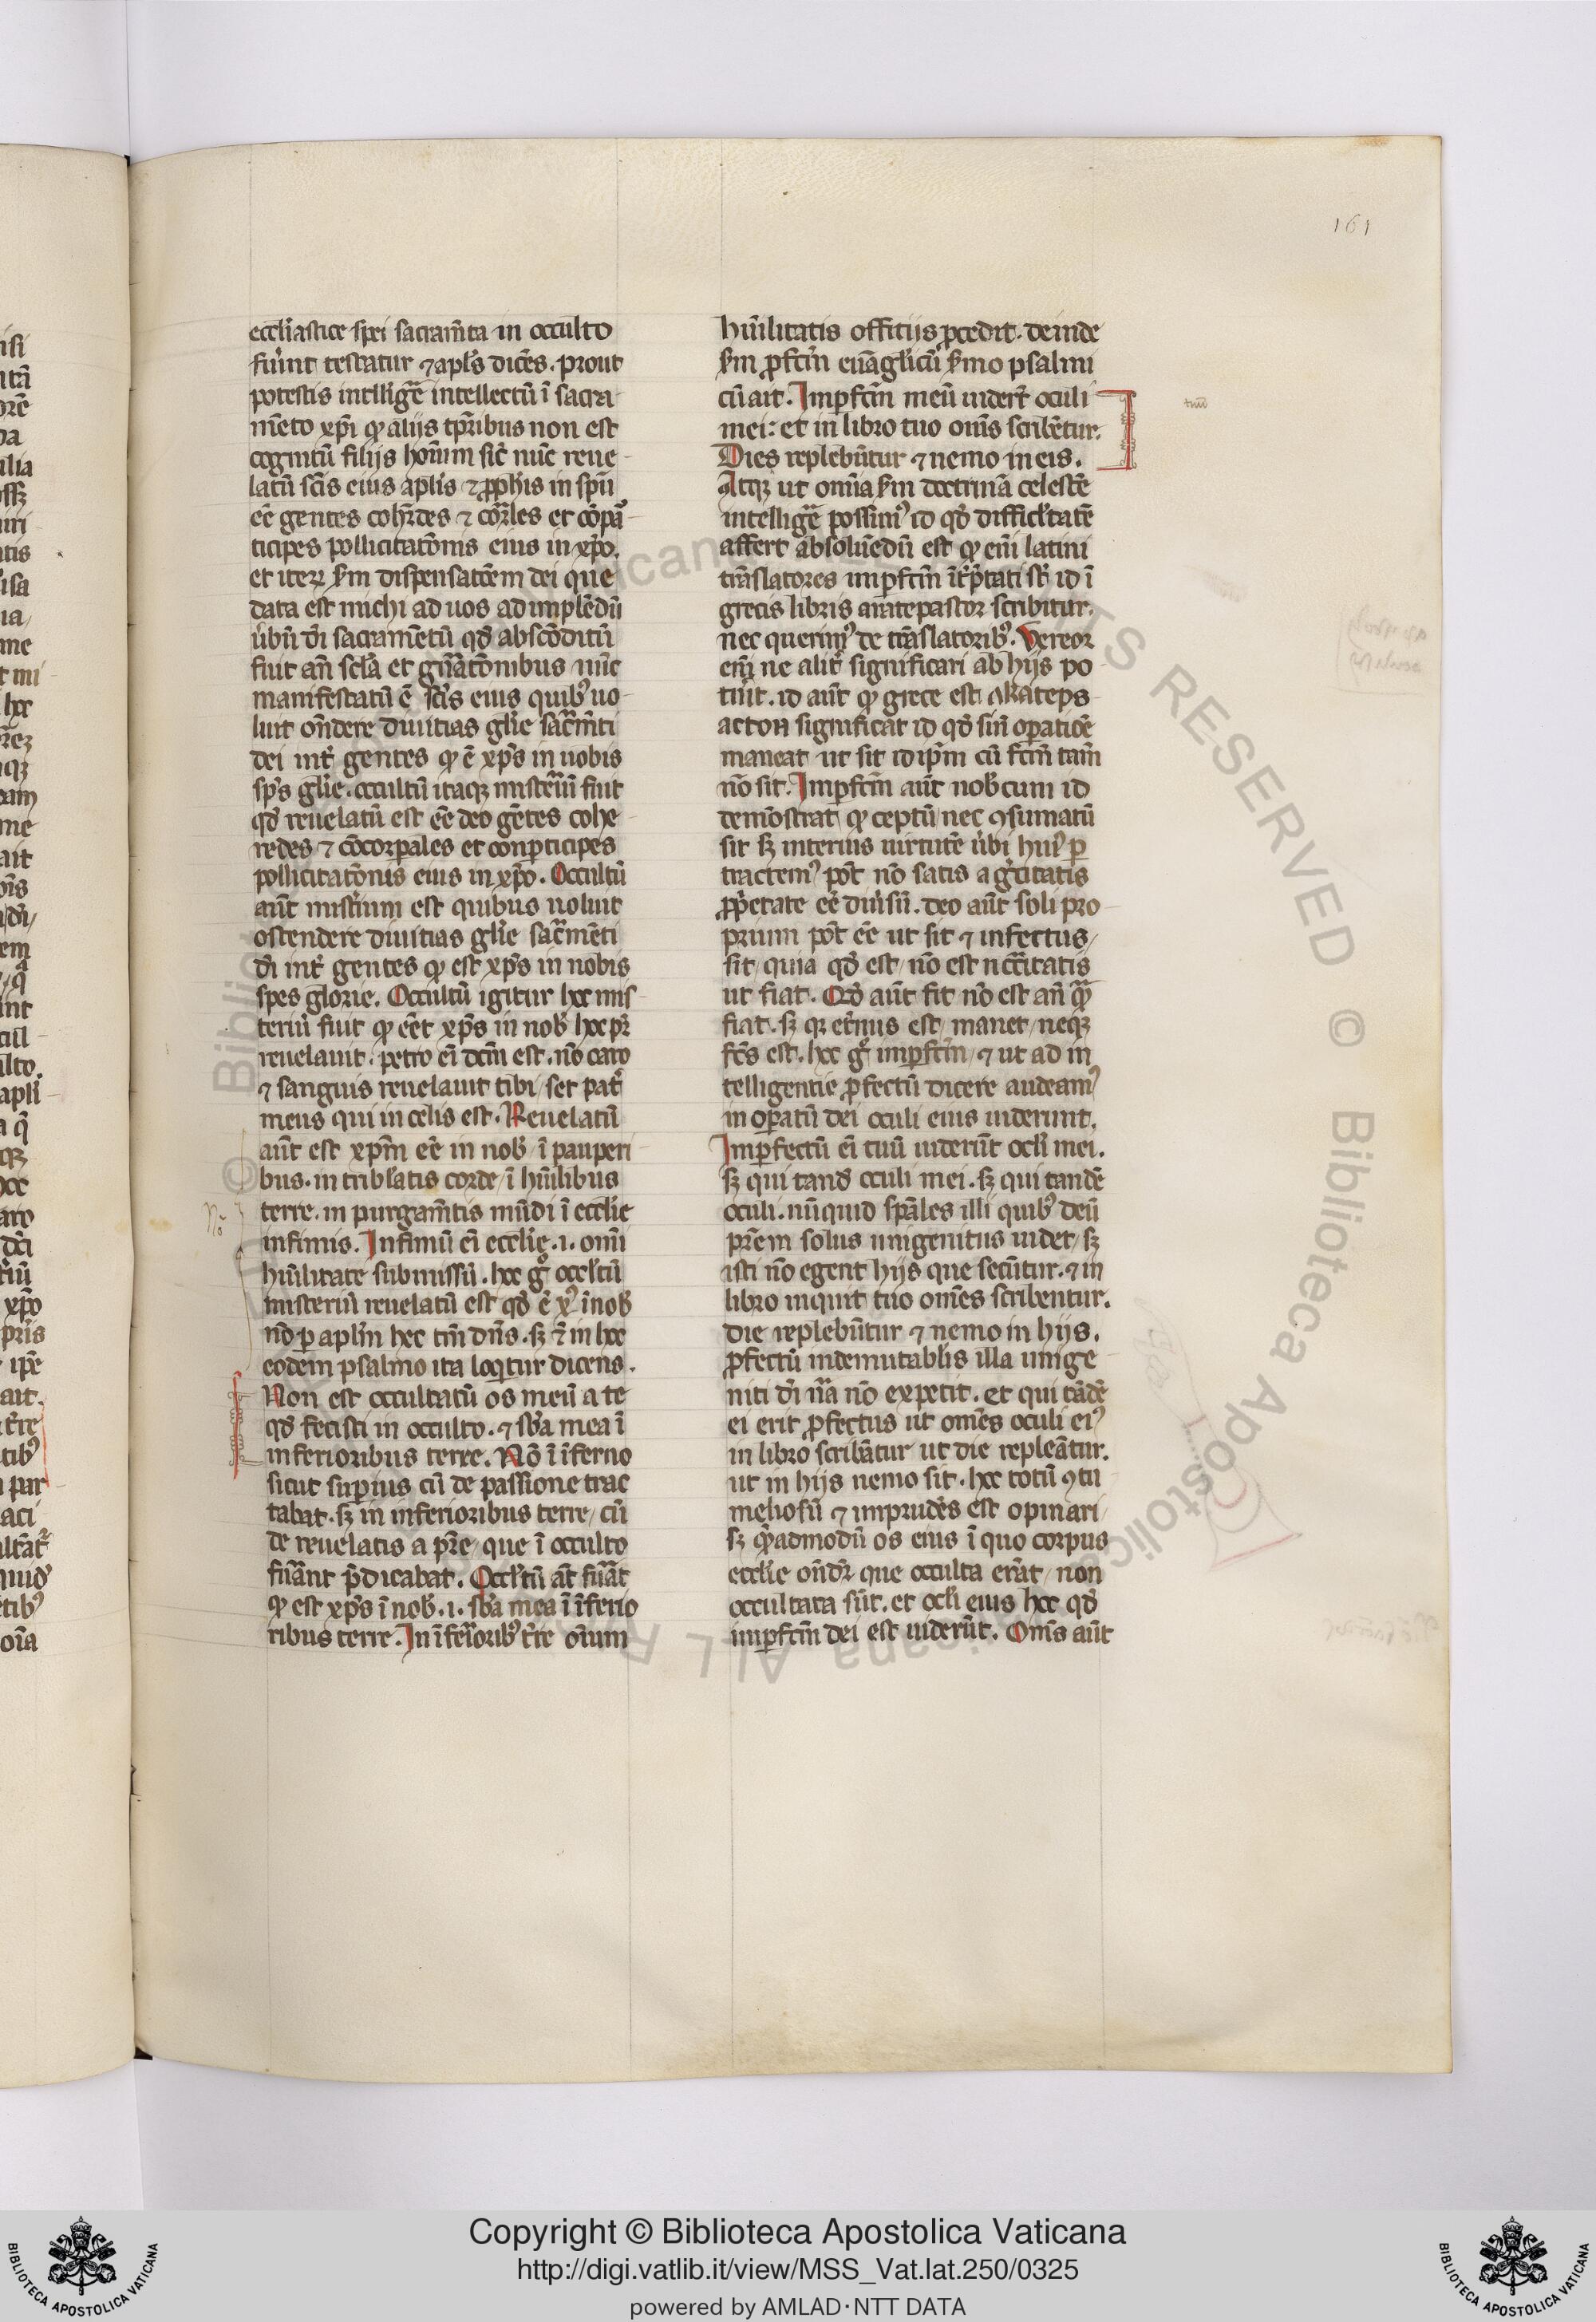 161
eccl̄iastice spei sacram̄ta in occulto
fūint testatur ⁊ apl̄s dicēs. prout
potestis intlliḡe intellectū ī sacra
mēto xp̄i qꝫ alijs tp̄ribus non est
cognitū filijs hoīum sic̄ nūc reue
latū sc̄is eius apl̄is ⁊ ꝓph̄is in sp̄u
eē gentes coh̄rdes ⁊ cōr̄les et cōpā
ticipes pollicitatōnis eius in xp̄o.
et iteꝝ s̄m dispensatōem dei que
data est michi ad uos ad implēdū
ūbū d̄i sacramētū qd̄ abscōditū
fuit an̄ scl̄a et gn̄atōnibus nūc
manifestatū ē sc̄is eius quibꝰ uo
luit on̄dere diuitias gl̄ie sac̄m̄ti
dei int̄ gentes qꝫ ē xp̄s in uobis
sp̄s gl̄ie. occultū itaqꝫ mistēiū fuit
qd̄ reuelatū est eē deo gētes cohe
redes ⁊ cōcorꝑales et conꝑticipes
pollicitatōnis eius in xp̄o. Occultū
aūt mist̄ium est quibus uoluit
ostendere diuitias gl̄ie sac̄mēti
d̄i int̄ gentes qꝫ est xp̄s in nobis
spes glorie. Occultū igitur hec mis
teriū fuit qꝫ eēt xp̄s in nob̄ hec pr̄
reuelauit. petro ei̅ dcm̄ est. nō caro
⁊ sanguis reuelauit tibi set pat̄
meus qui in celis est. Reuelatū
aūt est xp̄m eē in nob̄ ī pauperi
bus. in tribl̄atis corde ī hūilibus
terre. in purgam̄tis mūdi ī eccl̄ie
No͂
infimis. Infimū ei̅ eccl̄ie .i. om̄i
hūilitate submissū. hec gͦ occl̄tū
misteriū reuelatū est qd̄ ē xꝰ ī nob̄
nō ꝑ apl̄m hec tm̄ dn̄s. sꝫ ⁊ in hec
eodem psalmo ita loqͥtur dicens.
Non est occultatū os meū a te
qd̄ fecisti in occulto. ⁊ sb̄a mea ī
inferioribus terre. Nō ī īferno
sicut suꝑius cū de passione trac
tabat. sꝫ in inferioribus terre cū
de reuelatis a pr̄e que ī occulto
fūant p̄dicabat. Occl̄tū at̄ fūat
qꝫ est xp̄s ī nob̄ .i. sb̄a mea ī īferio
ribus terre. In īfēioribꝰ t̄re oīum
hūilitatis offitijs ꝓcedit. deinde
s̄m ꝓfcm̄ euāgl̄icū s̄mo psalmi
cū ait. Imꝑfcm̄ meū uider̄t oculi
mei: et in libro tuo om̄s scribētur.
Dies replebūtur ⁊ nemo in eis.
Atqꝫ ut om̄ia s̄m doctrinā celestē
intelliḡe possimꝰ id qd̄ difficl̄tatē
affert absoluēdū est qꝫ em̄ latini
trāslatores imꝑfcm̄ īt̄p̄tati st̄ id ī
grecis libris
scribitur.
nec querimꝰ de trāslatoribꝰ. Vereor
em̄ ne alit̄ significari ab hijs po
tūit. id aūt qꝫ grece est akateps
acton significat id qd̄ sin̄ oꝑatiōe
maneat ut sit id ip̄m cū fcm̄ tam̄
nō sit. Imꝑfcm̄ aūt nob̄cum id
demōstrat qꝫ ceptū nec ꝯsumatū
sit sꝫ interius uirtutē ūbi huiꝰ ꝑ
tractemꝰ pōt nō satis a
ꝓp̄etate eē diūsū. deo aūt soli pro
prium pōt eē ut sit ⁊ infectus
sit quia qd̄ est nō est nc̄c̄itatis
ut fiat. Qd̄ aūt fit nō est an̄ qͣ̄
fiat. sꝫ qꝛ et̄nus est manet neqꝫ
fcs̄ est. hec gͦ imꝑfcm̄ ⁊ ut ad in
telligentie ꝓfectū dicere audeamꝰ
inoꝑatū dei oculi eius uiderunt.
Imꝑfectū ei̅ tuū uiderūt ocl̄i mei.
sꝫ qui tand̄ oculi mei. sꝫ qui tandē
oculi. nūquid sp̄ales illi quibꝰ deū
pr̄em solus unigenitus uidet sꝫ
isti nō egent hijs que secūtur. ⁊ in
libro inquit tuo omēs scribentur.
die replebūtur ⁊ nemo in hijs.
ꝓfectū indemutabl̄is illa unige
niti d̄i nā nō expetit. et qui tādē
ei erit ꝓfectus ut omēs oculi eiꝰ
in libro scribātur ut die repleātur.
ut in hijs nemo sit. hec totū ꝯtu
meliosū ⁊ imprudēs est opinari
sꝫ qͣ̄admodū os eius ī quo corpus
eccl̄ie on̄dr̄ que occulta erāt non
occultata sūt. et ocl̄i eius hec qd̄
imꝑfcm̄ dei est uiderūt. Om̄s aūt
Copyright © Biblioteca Apostolica Vaticana
http://digi.vatlib.it/view/MSS_Vat.lat.250/0325
powered by AMLAD·NTT DATA